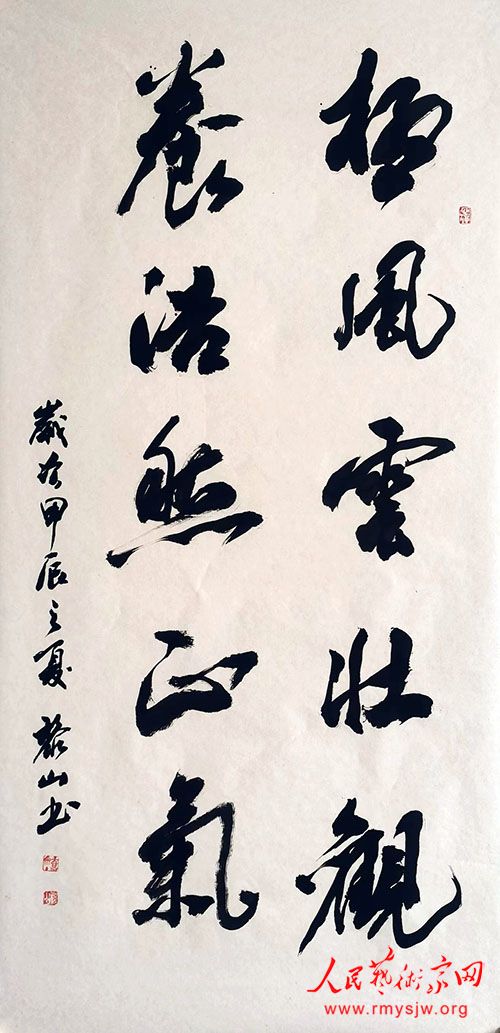 極風雲壯觀
養浩然正氣
歲次甲辰之夏 黎山书
人民藝術家网
www.rmysjw.org